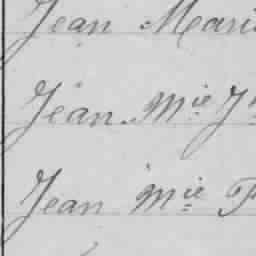 Jean Marie
Jean Mie J
Jean Mie P